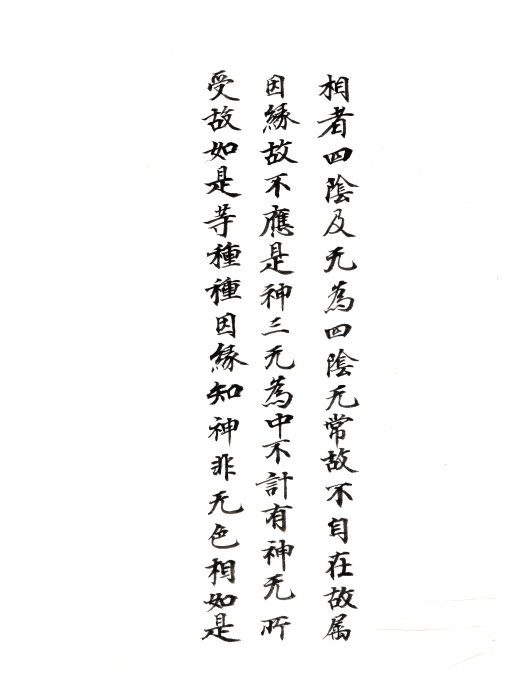 相者四陰及无為四陰无常故不自在故属
因縁故不應是神三无為中不計有神无所
受故如是等種種因縁知神非无色相如是